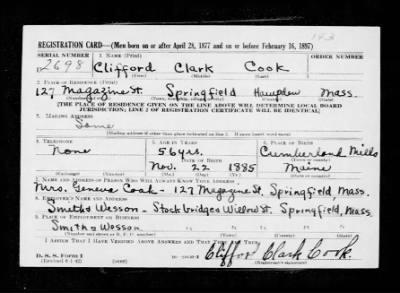 143
REGISTRATION CARD—(Men born on or after April 28, 1877 and on or before February 16, 1897)
SERIAL NUMBER 1. NAME (Print) ORDER NUMBER
U 2698 Clifford Clark Cook
(First) (Middle) (Last)
2. PLACE OF RESIDENCE (Print)
127 Magazine St. Springfield Hampden Mass.
(Number and street) (Town, township, village, or city) (County) (State)
[THE PLACE OF RESIDENCE GIVEN ON THE LINE ABOVE WILL DETERMINE LOCAL BOARD
JURISDICTION; LINE 2 OF REGISTRATION CERTIFICATE WILL BE IDENTICAL]
3. MAILING ADDRESS
Same
[Mailing address if other than place indicated on line 2. If same insert word same]
4. TELEPHONE 5. AGE IN YEARS 6. PLACE OF BIRTH
None 56 yrs. Cumberland Mills
DATE OF BIRTH (Town or county)
Nov. 22 1885 Maine
(Mo.) (Day) (Yr.) (State or country)
7. NAME AND ADDRESS OF PERSON WHO WILL ALWAYS KNOW YOUR ADDRESS
Mrs. Geneve Cook - 127 Magazine St, Springfield, Mass.
8. EMPLOYER'S NAME AND ADDRESS
Smith & Wesson - Stockbridge & Willow St. Springfield, Mass
9. PLACE OF EMPLOYMENT OR BUSINESS
Smith & Wesson
(Number and street or R. F. D. number) (Town) (County) (State)
I AFFIRM THAT I HAVE VERIFIED ABOVE ANSWERS AND THAT THEY ARE TRUE.
D. S. S. Form 1
(Revised 4-1-42) (over) Cliffor Clark Cook.
(Registrant's signature)